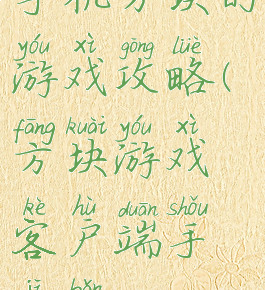 手机方块的
yóu xì gōng lüè
游戏攻略(
fāng kuài yóu xì
方块游戏
kè hù duān shǒu
客户端手